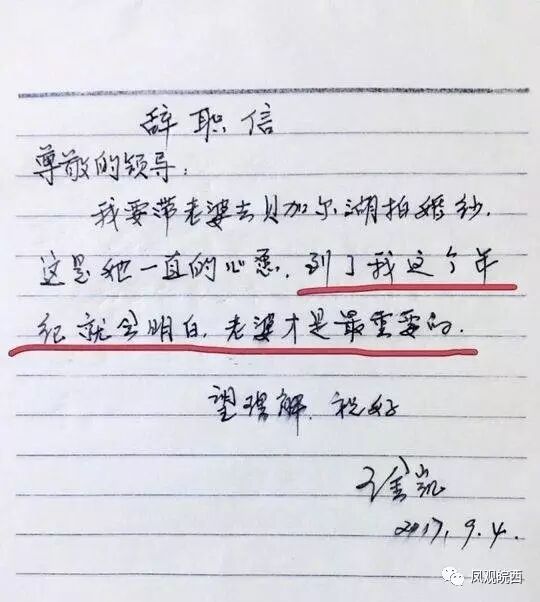 辞职信
尊敬的领导：
我要带老婆去贝加尔湖拍婚纱.
这是她一直的心愿.到了我这个年
纪就会明白.老婆才是最重要的.
望理解.祝好
凯
2017.9.4.
凤观皖西